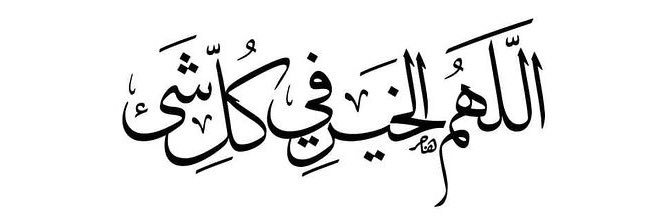 اللَّهُمَّ الخَيرَ فِي كُلِّ شَيْءٍ